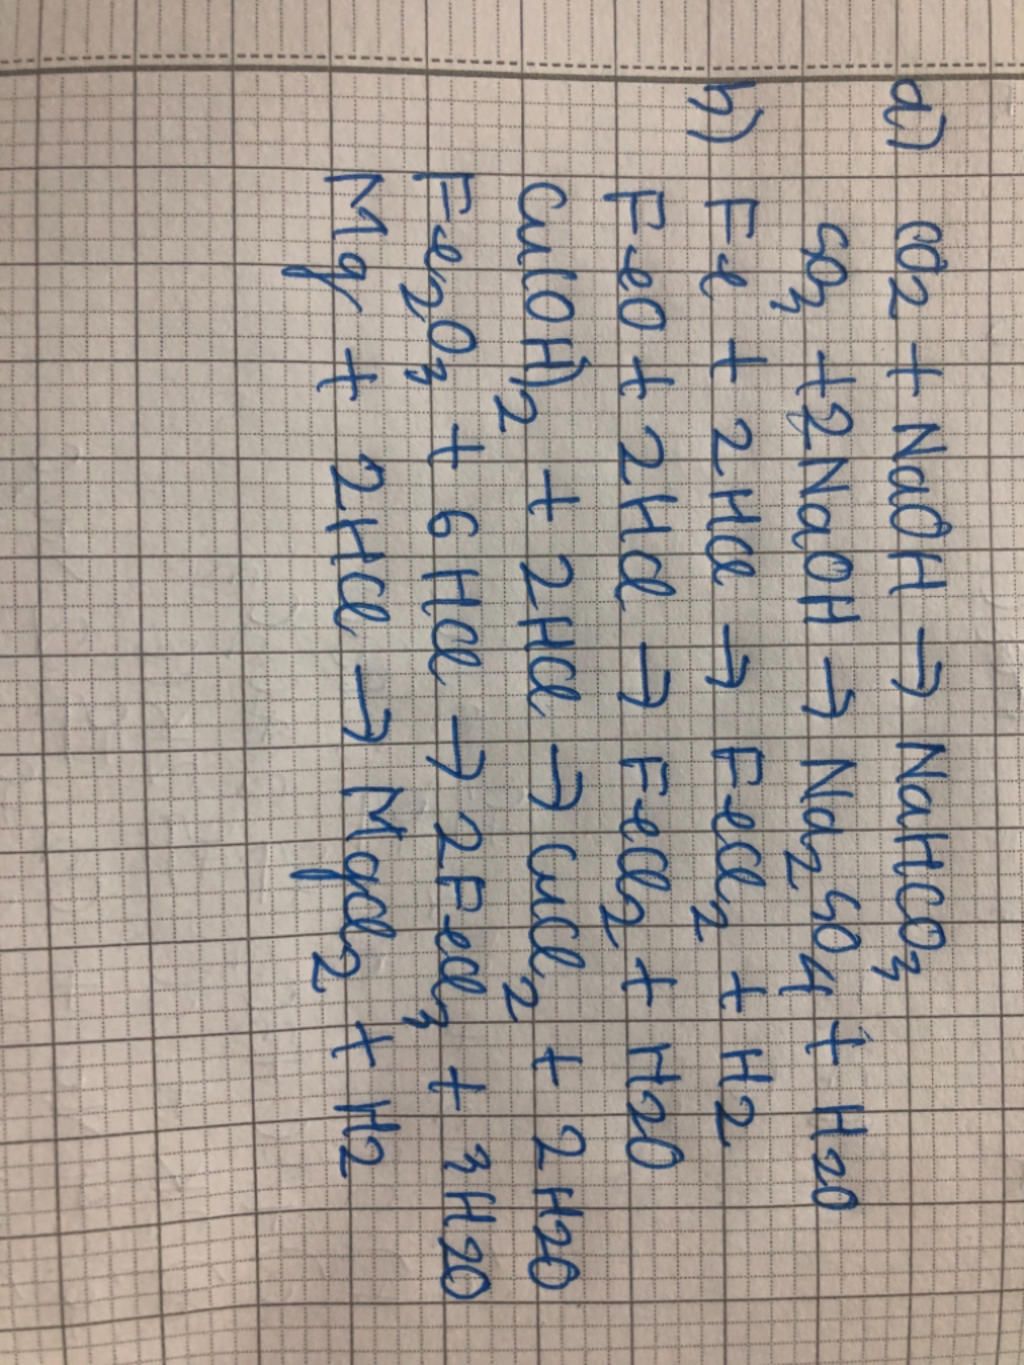 a) CO2 + NaOH → NaHCO3
SO3 + 2NaOH → Na2SO4 + H2O
b) Fe + 2HCl → FeCl2 + H2
FeO + 2HCl → FeCl2 + H2O
Cu(OH)2 + 2HCl → CuCl2 + 2H2O
Fe2O3 + 6HCl → 2FeCl3 + 3H2O
Mg + 2HCl → MgCl2 + H2